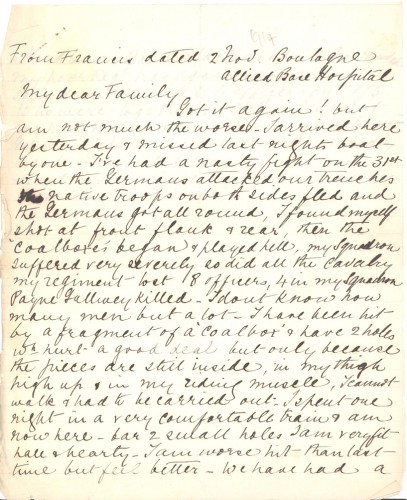 1914
From Francis dated 2 Nov. Boulogne
Allied Base Hospital
My dear Family
Got it again! but
am not much the worse - I arrived here
yesterday & missed last nights boat
by one - I've had a nasty fight on the 31st
when the Germans attacked our trenches
native troops on both sides fled and
the Germans got all round, I found myself
shot at front flank & rear, then the
"coalboxes" began & played hell, my Squadron
suffered very severely so did all the cavalry
my regiment lost 8 officers, 4 in my Squadron
Payne Gallwey killed - I dont know how
many men but a lot - I have been hit
by a fragment of a "coalbox" & have 2 holes
wh hurt a good deal but only because
the pieces are still inside, in my thigh
high up & in my riding muscle, I cannot
walk & had to be carried out - I spent one
night in a very comfortable train & am
now here - bar 2 small holes I am very fit
hale & hearty - I am worse hit than last
time but feel better - We have had a